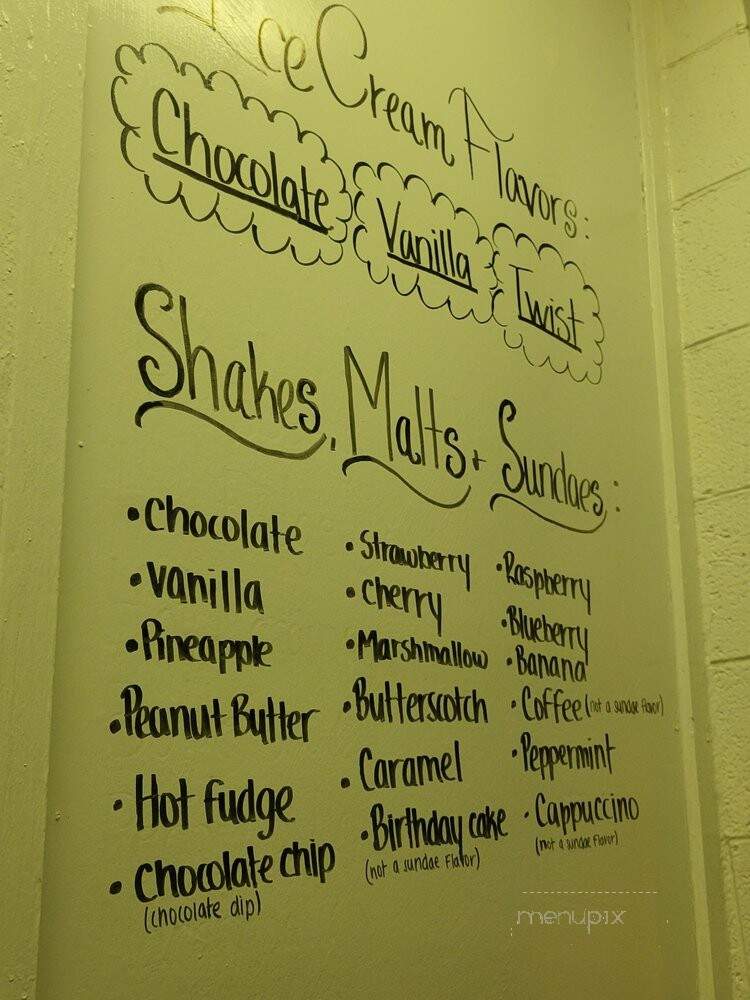 Ice Cream Flavors:
Chocolate
Vanilla
Twist
Shakes, Malts + Sundaes:
•Chocolate
•Vanilla
•Pineapple
•Peanut Butter
•Hot fudge
•Chocolate chip
(chocolate dip)
•Strawberry
•Cherry
•Marshmallow
•Butterscotch
•Caramel
•Birthday cake
(not a sundae Flavor)
•Raspberry
•Blueberry
•Banana
•Coffee (not a sundae flavor)
•Peppermint
•Cappuccino
(not a sundae Flavor)
menupix